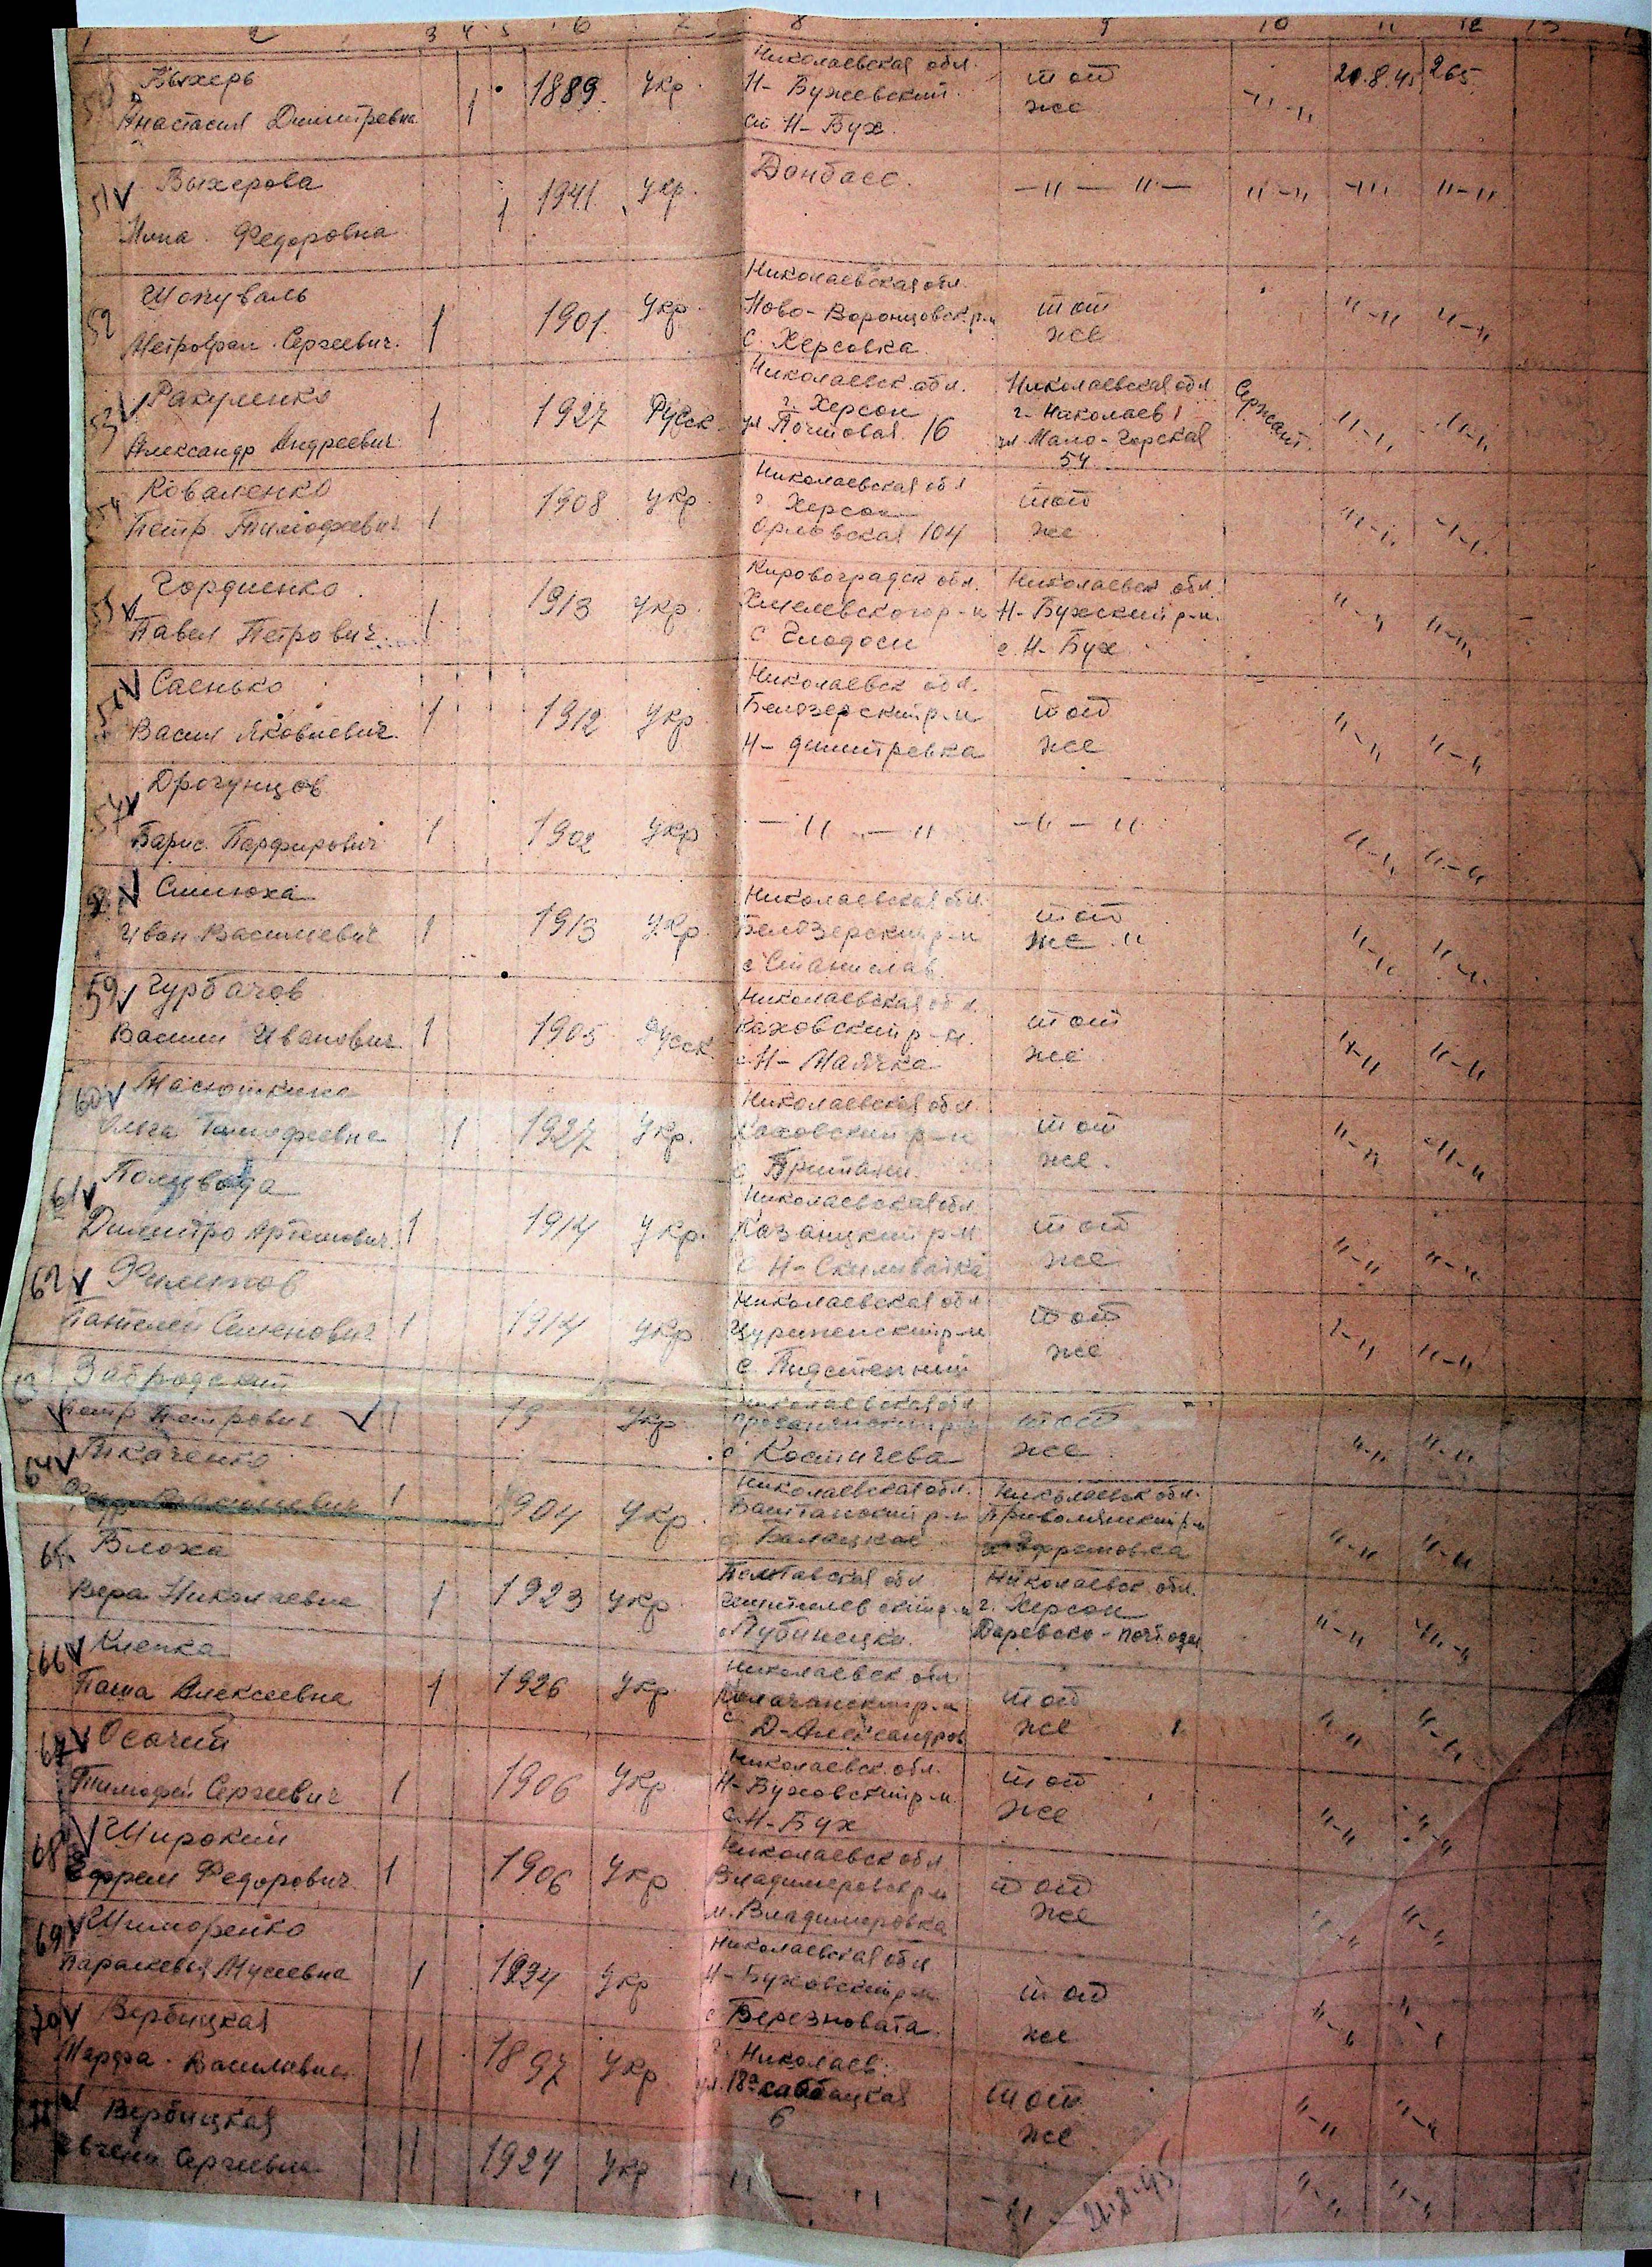 1 2 3 4 5 6 7 8 9 10 11 12 13
Выхерь Анастасия Димитревна 1 1889 Укр. Николаевская обл. Н-Бужевский ст Н-Бух тот же -"-" 20.8.45 265
51 Выхерова Федоровна 1 1941 Укр. Донбасс -"-"- "-" -"- "-"
52 Шопуваль Сергеевич 1 1901 Укр. Николаевская обл. Ново-Воронцовск. р-н с. Херсовка тот же "-" "-"
53 Ракуленко Александр Андреевич 1 1927 Русск. Николаевск. обл. г. Херсон ул Почтовая 16 Николаевская обл г. Николаев ул. Мало-Горская 54 Сержант "-" "-"
54 Коваленко Петр Тимофеевич 1 1908 Укр Николаевская обл г Херсон Орловская 104 тот же "-" "-"
55 Гордиенко Павел Петрович 1 1913 Укр. Кировоградск обл. Хмелевского р-н с Глодоси Николаевск обл. Н-Бужский р-н. с. Н-Бух "-" "-"
56 Саенько Васил Яковлевич 1 1912 Укр Николаевск обл. Белозерский р-н Н-димитревка тот же "-" "-"
57 Дрогунцов Барис Парфирович 1 1902 Укр -"-" -"-" "-" "-"
Синюха Иван Василевич 1 1913 Укр. Николаевская обл. Белозерский р-н с Станислав тот же " "-" "-"
59 Гурбачов Василий Иванович 1 1905 Русск Николаевская обл. Каховский р-н. с Н-Маячка тот же "-" "-"
60 Масюткина Ольга Тимофеевна 1 1927 Укр. Николаевская обл Каховский р-н с Британи тот же "-" "-"
61 Полывода Димитро Артемович 1 1914 Укр. Николаевская обл Казанцкий р-н с Н-Скиливатка тот же "-" "-"
62 Филипов Пантелей Семенович 1 1914 Укр Николаевская обл Цурипинский р-н с. Пидстепний тот же "-" "-"
63 Забродский Петр Петрович 1 19 Укр Николаевская обл р-н с Костичева тот же "-" "-"
64 Ткаченко 1 1904 Укр. Николаевская обл. Баштанский р-н с Балацкое Николаевск обл. Приволянский р-н Ефремовка "-" "-"
65 Блоха Вера Николаевна 1 1923 Укр Полтавская обл р-н Николаевск обл. г. Херсон "-" "-"
66 Клепка Паша Алексеевна 1 1926 Укр Николаевск обл р-н с Д-Александров тот же "-" "-"
67 Осачий Тимофей Сергеевич 1 1906 Укр. Николаевск. обл. Н-Бужовский р-н с. Н-Бух тот же "-" "-"
68 Широкий Ефрем Федорович 1 1906 Укр Николаевск обл Владимеровск р-н м. Владимеровка тот же "-" "-"
69 Шиморенко Параскевья Мусеевна 1 1924 Укр Николаевская обл Н-Бужовский р-н с Березновата тот же "-" "-"
70 Вербицкая Марфа Василовна 1 1897 Укр г. Николаев ул. 18а 6 тот же "-" "-"
71 Вербицкая Евгени Сергеевна 1 1924 Укр "-" -"- "-" "-"
21.8.45